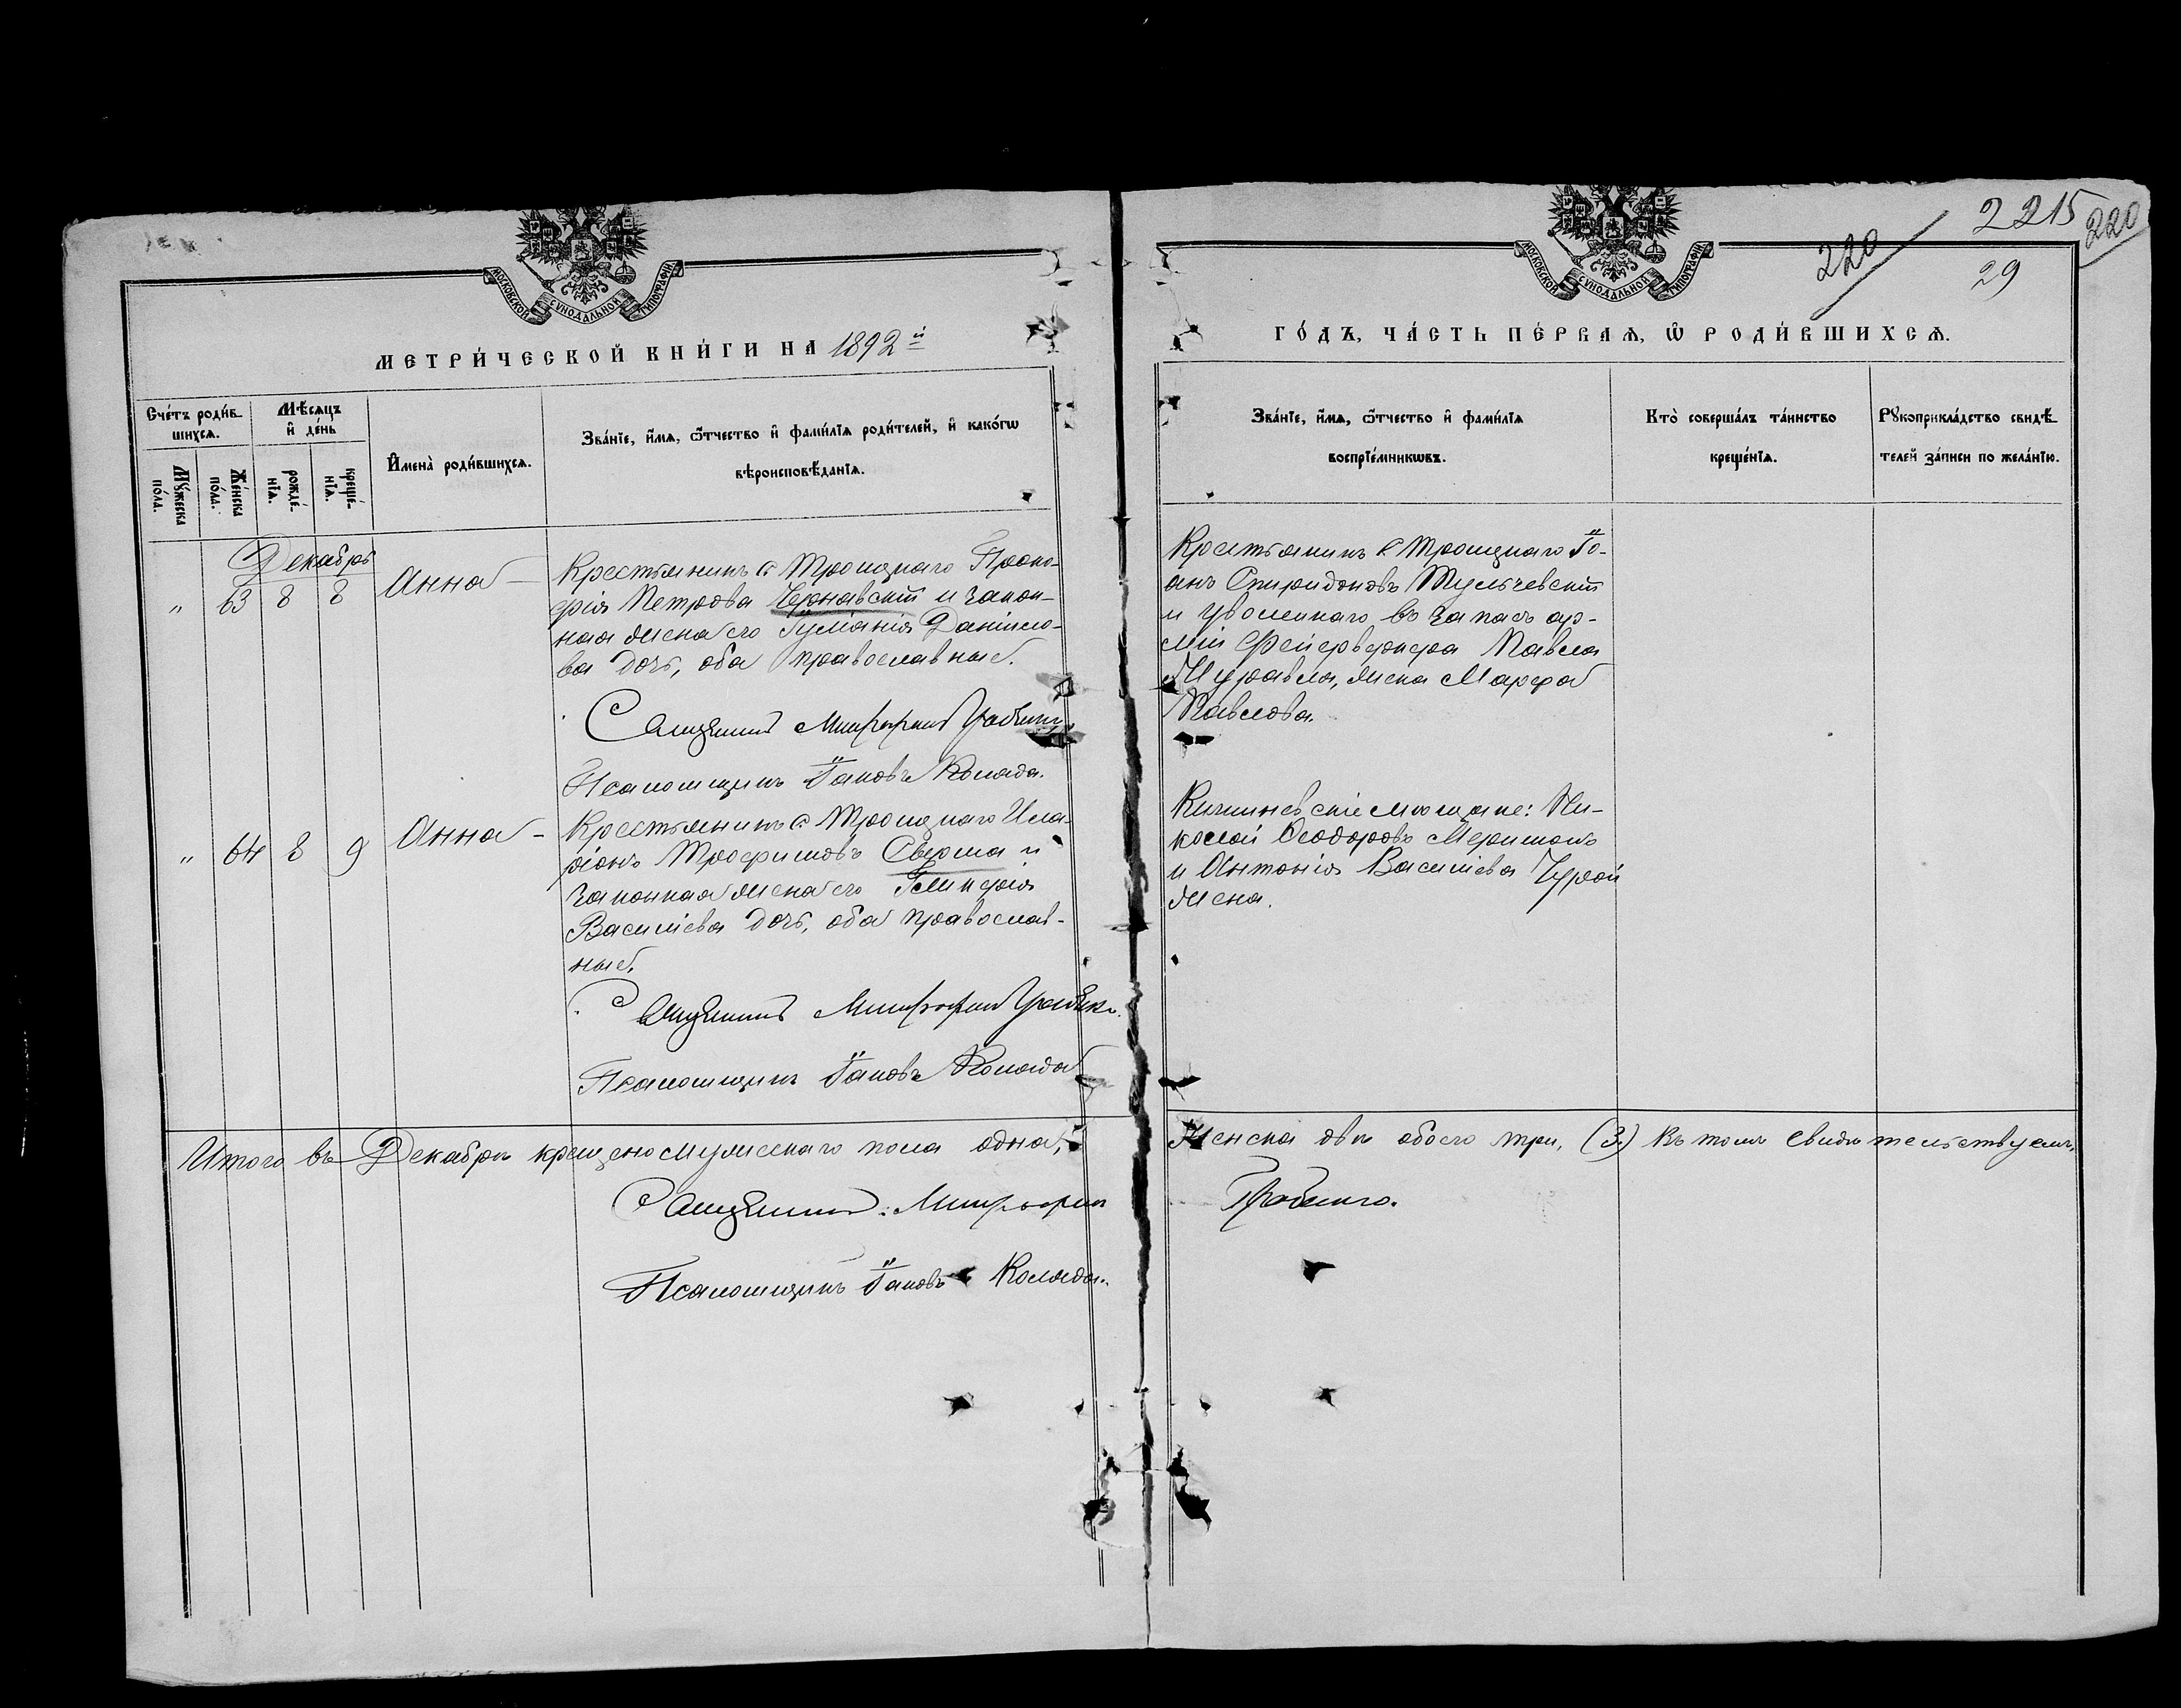 2215
220
220
29
МОСКОВСКОЙ СѴНОДАЛЬНОЙ ТИПОГРАФІИ
МОСКОВСКОЙ СѴНОДАЛЬНОЙ ТИПОГРАФІИ
МЕТРИ́ЧЕСКОЙ КНИ́ГИ НА 1892 й
ГО́ДЪ, ЧА́СТЬ ПЕ́РВАѦ, Ѡ҆ РОДИ́ВШИХСѦ.
Сче́тъ роди́в
шихсѧ.
Мꙋ́жеска
по́ла.
Же́нска
по́ла.
Мѣ́сѧцъ
и҆ де́нь
рожде́-
нїѧ.
креще́-
нїѧ.
И҆мена̀ роди́вшихсѧ.
Зва́нїе, и҆́мѧ, ѻ҆́тчество и҆ фами́лїѧ роди́телей, и҆ како́гѡ
вѣроисповѣ́данїѧ.
Зва́нїе, и҆́мѧ, ѻ҆́тчество и҆ фами́лїѧ
воспрїе́мникѡвъ.
Кто̀ соверша́лъ та́инство
креще́нїѧ.
Рꙋкоприкла́дство свидѣ́
телей за́писи по жела́нїю.
Декабрь
" 63 8 8 Анна
Крестьянинъ с. Троицкаго Проко-
фія Петрова Чернавскій и закон-
ная жена его Іуліанія Даніило-
ва дочь, оба православные.
Священникъ Митрофанъ
Псаломщикъ Іаковъ Коляда.
Крестьянинъ с Троицкаго Іо-
анъ Спиридоновъ Тульчевскій
и уволеннаго въ запасъ ар-
міи Фейерверкера Павла
Журавля, жена Марфа
Павлова.
" 64 8 9 Анна
Крестьянинъ с. Троицкаго Ила-
ріонъ Трофимовъ Сверша и
законная жена его Гликерія
Василіева дочь, оба православ-
ные.
Священникъ Митрофанъ
Псаломщикъ Іаковъ Коляда
Кишиневскіе мѣщане: Ни-
колай Ѳеодоровъ
и Антонія Василіева
жена.
Итого въ Декабрѣ крещено мужескаго пола одна, Женска двѣ обоего три, (3.) Въ томъ свидѣтельствуемъ,
Священникъ: Митрофанъ
Псаломщикъ Іаковъ Коляда.